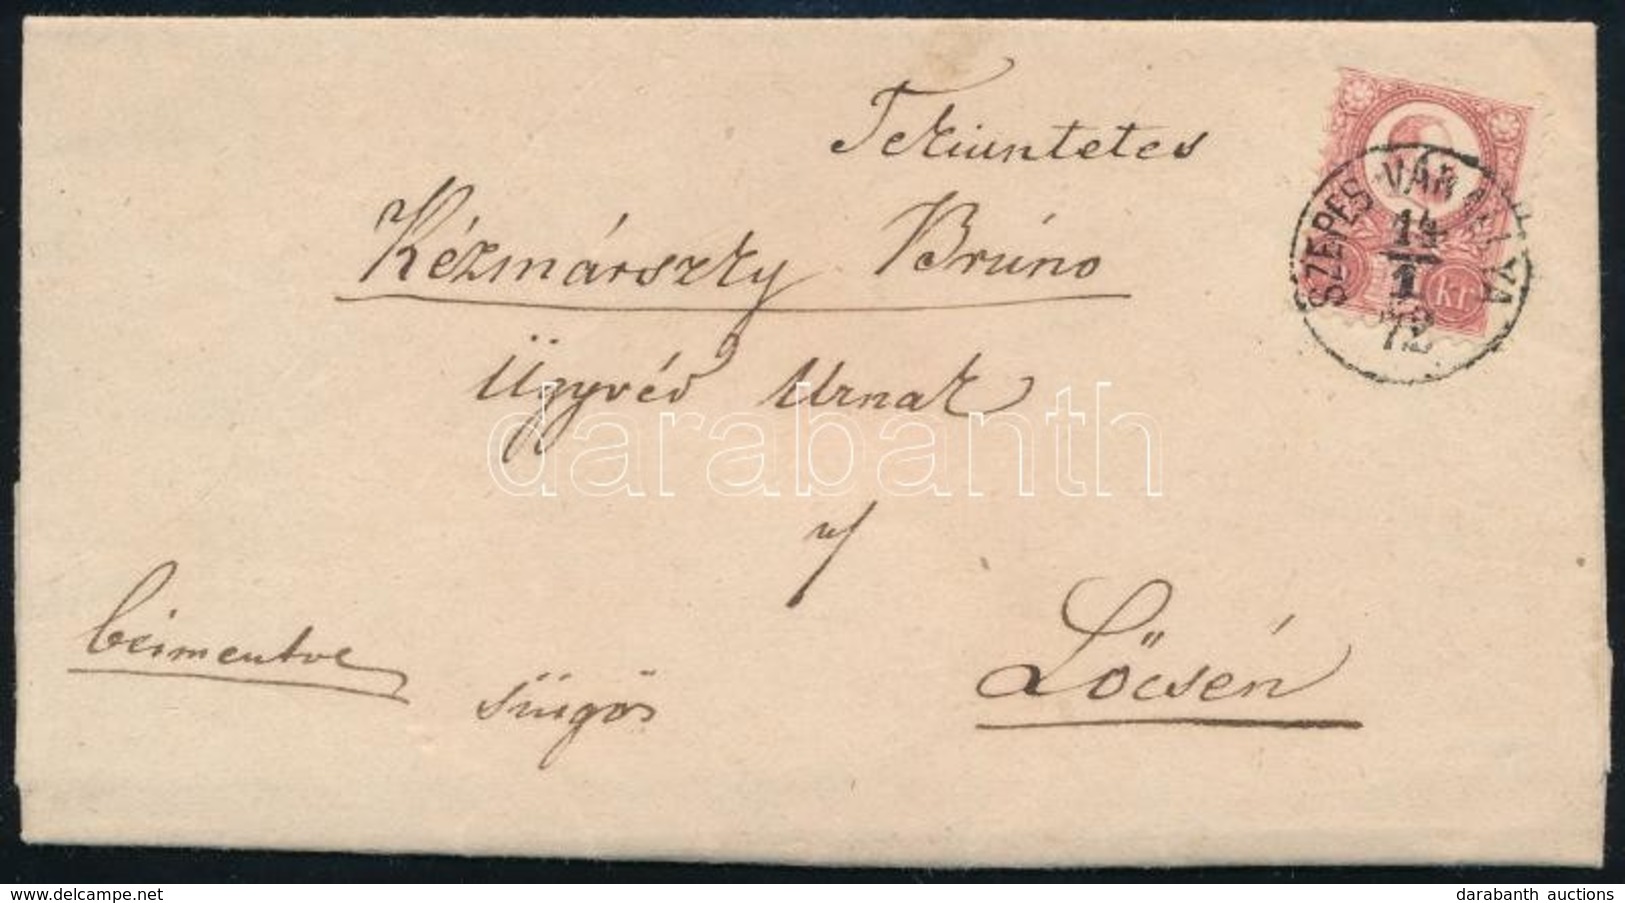 Tekiuntetes
Kézmárszky Brúno
Ügyvéd Urnak
u/
Lőcsén
béimentve
sürgős
SZEPES-VÁRALLYA
14
1
72
Kr
darabanth
www.delcampe.net
darabanth auctions